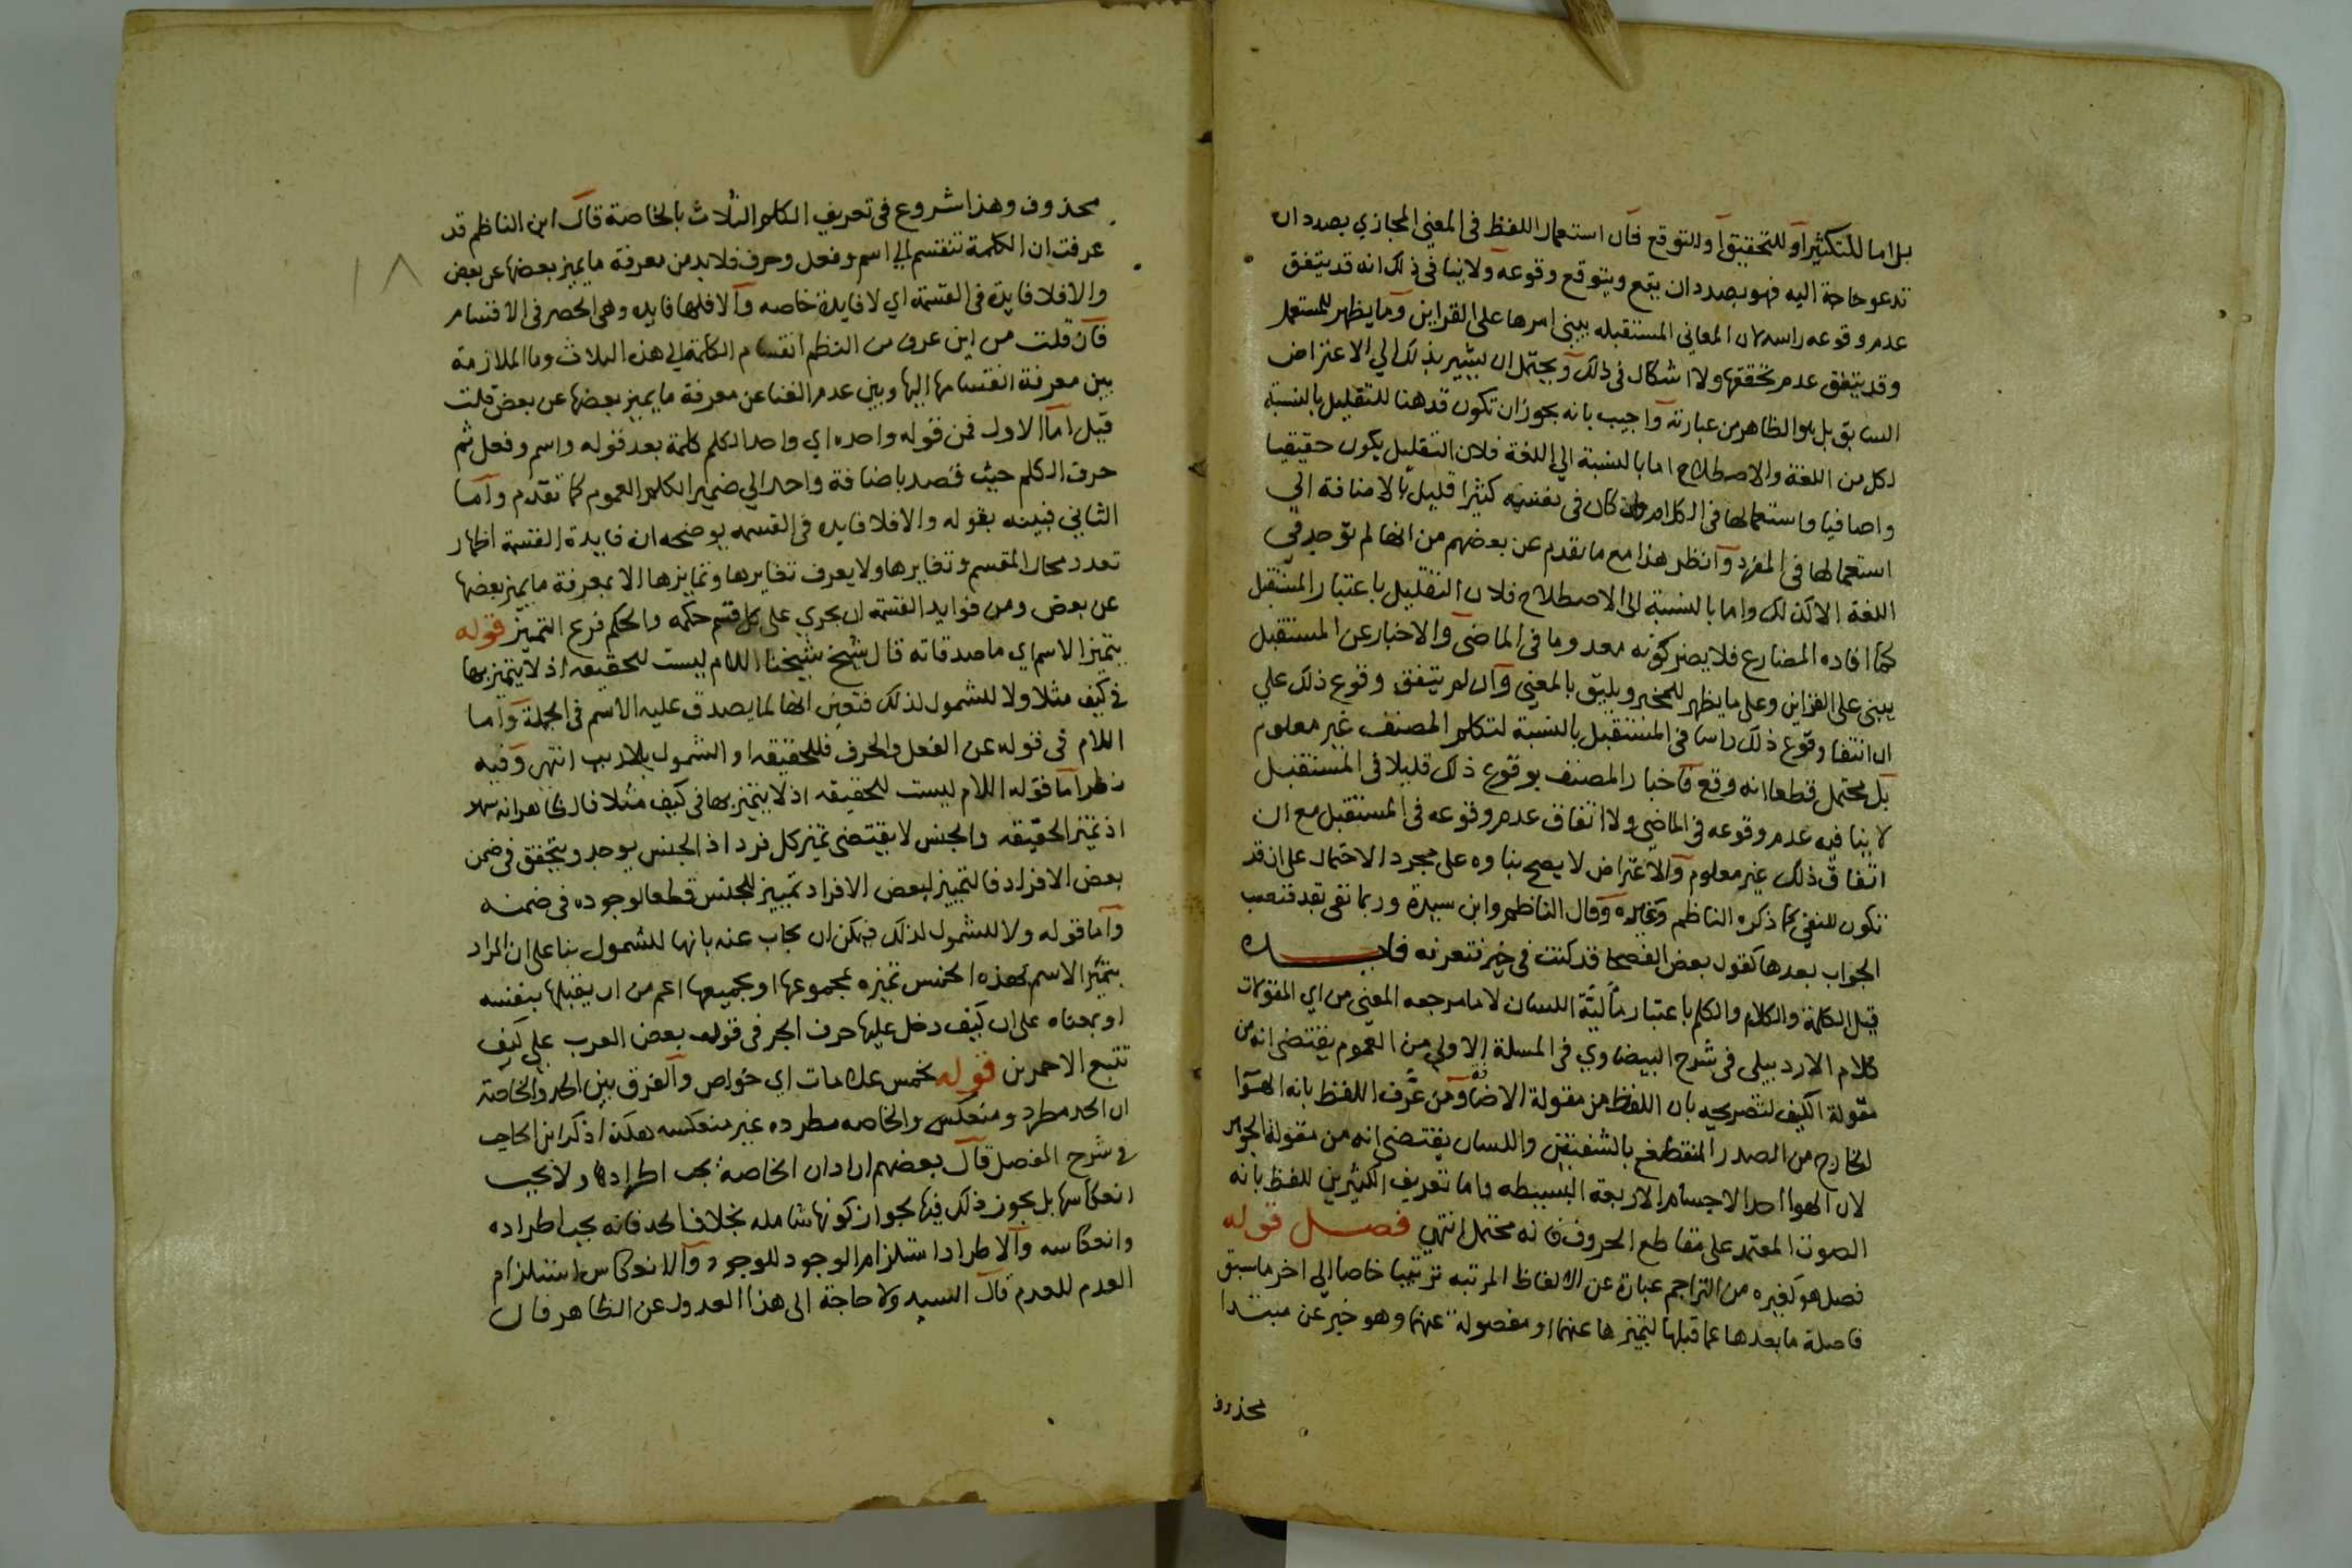 بل اما للتكثير او للتحقيق او للتوقع فان استعمال اللفظ في المعني المجازي بصدد ان
تدعو حاجة اليه فهو بصدد ان يقع ويتوقع وقوعه ولا ينافي ذلك انه قد يتفق
عدم وقوعه راسا لان المعاني المستقبله يبني امرها على القراين وما يظهر للمستعمل
وقد يتفق عدم تحققها ولا اشكال في ذلك ويحتمل ان يشير بذلك الي الاعتراض
السابق بل هو الظاهر من عبارته واجيب بانه يجوز ان تكون قد هنا للتقليل بالنسبة
لكل من اللغة والاصطلاح اما بالنسبة الي اللغة فلان التقليل يكون حقيقيا
واضافيا واستعمالها في الكلام وان كان في نفسه كثيرا قليل بالاضافة الي
استعمالها في المفرد وانظر هذا مع ما تقدم عن بعضهم من انها لم توجد في
اللغة الا كذلك واما بالنسبة الى الاصطلاح فلان التقليل باعتبار المستقبل
كما افاده المضارع فلا يضر كونه معدوما في الماضي والاخبار عن المستقبل
يبني على القراين وعلى ما يظهر للمخبر ويليق بالمعني وان لم يتفق وقوع ذلك علي
ان انتفا وقوع ذلك راسا في المستقبل بالنسبة لتكلم المصنف غير معلوم
بل محتمل قطعا انه وقع فاخبار المصنف بوقوع ذلك قليلا في المستقبل
لا ينافيه عدم وقوعه في الماضي ولا اتفاق عدم وقوعه في المستقبل مع ان
اتفاق ذلك غير معلوم والاعتراض لا يصح بناوه على مجرد الاحتمال على ان قد
تكون للنفي كما ذكره الناظم وغيره وقال الناظم وابن سيدة وربما نفي بقد فنصب
الجواب بعدها كقول بعض الفصحا قد كنت في خير فتعرفه فايده
قيل الكلمة والكلام والكلم باعتبار اللسان لا ما مرجعه المعني من اي المقولات
كلام الاردبيلي في شرح البيضاوي في المسلة الاولي من العموم يقتضي انه من
مقولة الكيف لتصريحه بان اللفظ من مقولة الاضافة ومن عرف اللفظ بانه الهوا
الخارج من الصدر المنقطع بالشفتين واللسان يقتضي انه من مقولة الجوهر
لان الهوا احد الاجسام الاربعة البسيطه واما تعريف الكثيرين للفظ بانه
الصوت المعتمد على مقاطع الحروف فانه محتمل انتهي فصل قوله
فصل هو كغيره من التراجم عبارة عن الالفاظ المرتبه ترتيبا خاصا الي اخر ما سبق
فاصلة ما بعدها عما قبلها لتميزها عنهما او مفصولة عنهما وهو خبر عن مبتدا
محذوف
محذوف وهذا شروع في تعريف الكلم الثلاث بالخاصة قال ابن الناظم قد
عرفت ان الكلمة تنقسم الي اسم وفعل وحرف فلا بد من معرفة ما يميز بعضها عن بعض
والا فلا فايدة في القسمة اي لا فايدة خاصه والا فلها فايده وهي الحصر في الاقسام
فان قلت من اين عرف من النظم انقسام الكلمة الي هذه الثلاث وما الملازمة
بين معرفة انقسامها اليها وبين عدم الغنا عن معرفة ما يميز بعضها عن بعض قلت
قيل اما الاول فمن قوله واحده اي واحد الكلم كلمة بعد قوله واسم وفعل ثم
حرف الكلم حيث قصد باضافة واحد الي ضمير الكلم العموم كما تقدم واما
الثاني فبينه بقوله والا فلا فايده في القسمه يوضحه ان فايدة القسمة اظهار
تعدد محال المقسم وتغايرها ولا يعرف تغايرها وتمايزها الا بمعرفة ما يميز بعضها
عن بعض ومن فوايد القسمة ان يجري على كل قسم حكمه والحكم فرع التمييز قوله
يتميز الاسم اي ماصدقاته قال شيخ شيخنا اللام ليست للحقيقه اذ لا يتميز بها
في كيف مثلا ولا للشمول لذلك فتعين انها لما يصدق عليه الاسم في الجملة واما
اللام في قوله عن الفعل والحرف فللحقيقه او الشمول بلا ريب انتهي وفيه
نظر اما قوله اللام ليست للحقيقه اذ لا يتميز بها في كيف مثلا فالظاهر انه سهو
اذ تميز الحقيقه والجنس لا يقتضي تميز كل فرد اذ الجنس يوجد ويتحقق في ضمن
بعض الافراد فالتمييز لبعض الافراد تمييز للجنس قطعا لوجوده في ضمنه
واما قوله ولا للشمول لذلك فيمكن ان يجاب عنه بانها للشمول بنا على ان المراد
بتميز الاسم بهذه الخمس تميزه بمجموعها او بجميعها اعم من ان يقبلها بنفسه
او بمعناه على ان كيف دخل عليها حرف الجر في قوله بعض العرب علي كيف
تتبع الاحمرين قوله بخمس علامات اي خواص والفرق بين الحد والخاصة
ان الحد مطرد ومنعكس والخاصه مطرده غير منعكسه هكذا ذكر ابن الحاجب
في شرح المفصل قال بعضهم اراد ان الخاصة يجب اطرادها ولا يجب
انعكاسها بل يجوز ذلك فيها لجواز كونها شامله بخلاف الحد فانه يجب اطراده
وانعكاسه والاطراد استلزام الوجود للوجود والانعكاس استلزام
العدم للعدم قال السيد ولا حاجة الى هذا العدول عن الظاهر فان
١٨